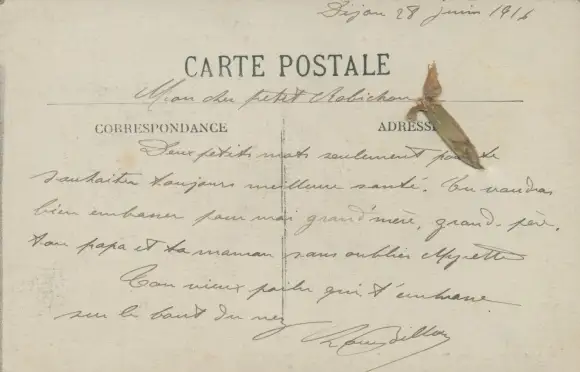 Dijon 28 juin 1916
CARTE POSTALE
Mon cher petit Robichon
CORRESPONDANCE
ADRESSE
Deux petits mots seulement pour te
souhaiter toujours meilleure santé. Tu voudras
bien embrasser pour moi grand'mère, grand-père,
ton papa et ta maman sans oublier Myrette
Ton vieux poilu qui t'embrasse
sur le bout du nez